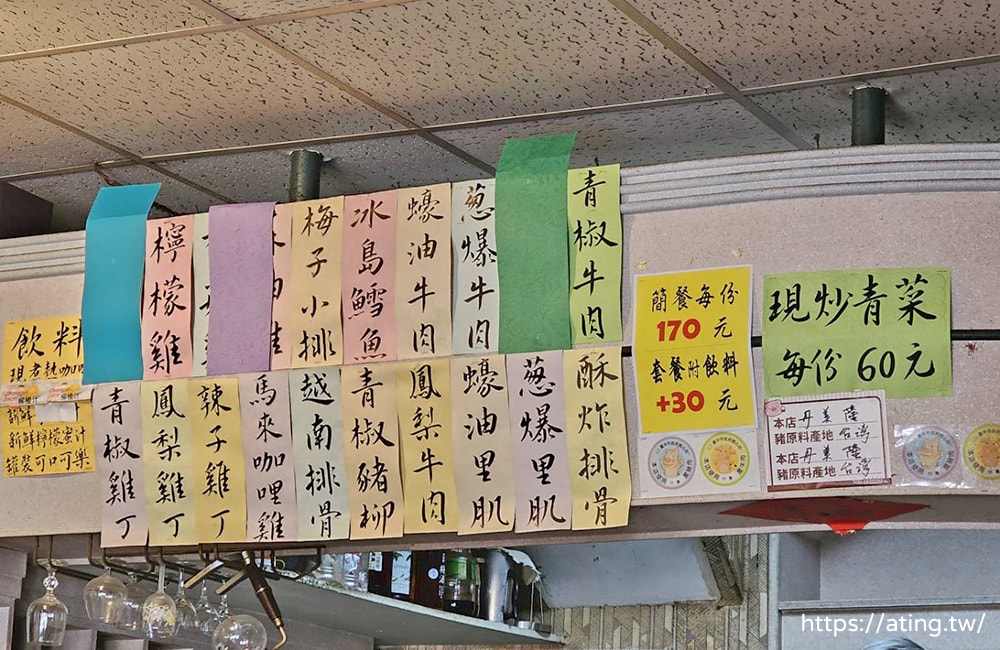 飲料
現煮熱咖
新鮮
新鮮檸檬蜜汁
罐裝可口可樂
檸檬雞
梅子小排
冰島鱈魚
蠔油牛肉
蔥爆牛肉
青椒牛肉
青椒雞丁
鳳梨雞丁
辣子雞丁
馬來咖哩雞
越南排骨
青椒豬柳
鳳梨牛肉
蠔油里肌
蔥爆里肌
酥炸排骨
簡餐每份
170元
套餐附飲料
+30元
現炒青菜
每份60元
本店丹麥 陸
豬原料產地 台灣
本店丹麥 陸
豬原料產地 台灣
https://ating.tw/